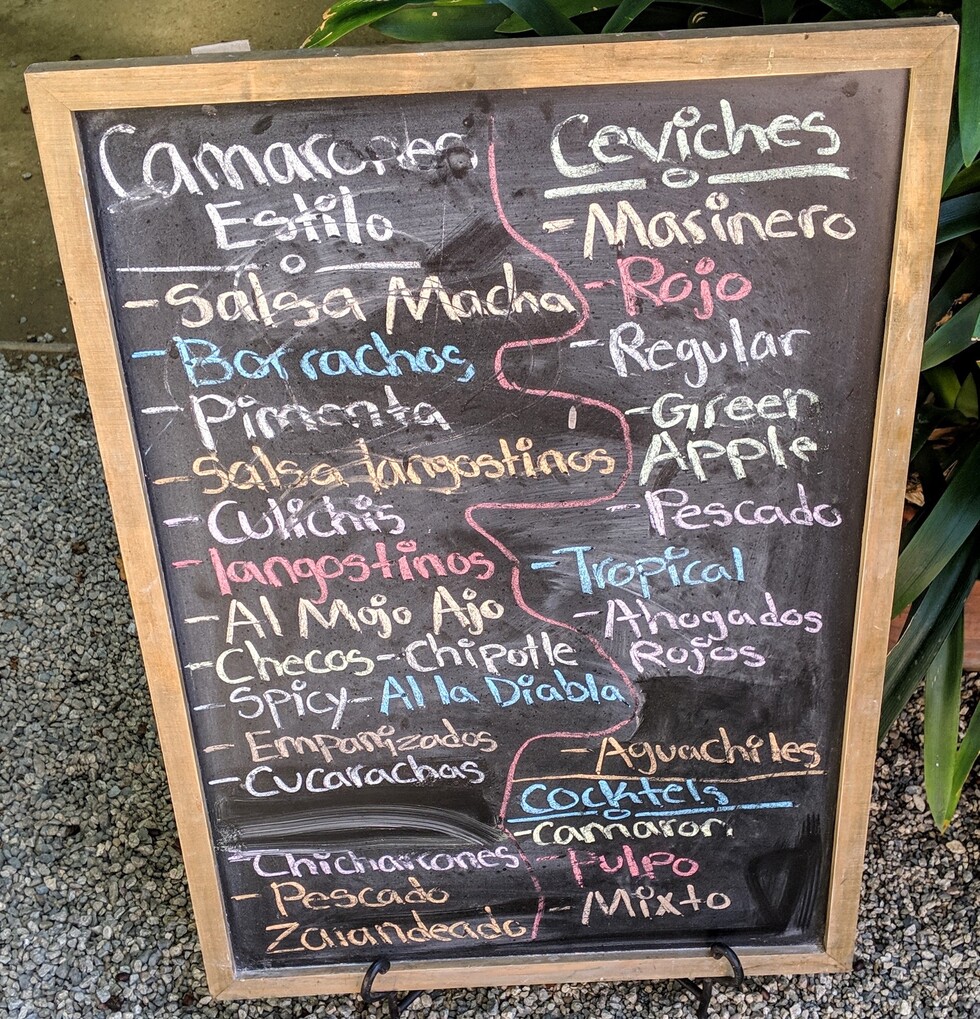 Camarones
Estilo
- Salsa Macha
- Borrachos
- Pimenta
- Salsa langostinos
- Culichis
- langostinos
- Al Mojo Ajo
- Checos - Chipotle
- Spicy - Al la Diabla
- Empanizados
- Cucarachas
Chicharrones
- Pescado
Zarandeado
Ceviches
- Marinero
- Rojo
- Regular
- Green
Apple
- Pescado
- Tropical
- Ahogados
Rojos
- Aguachiles
Cocktels
- Camaron
- Pulpo
- Mixto